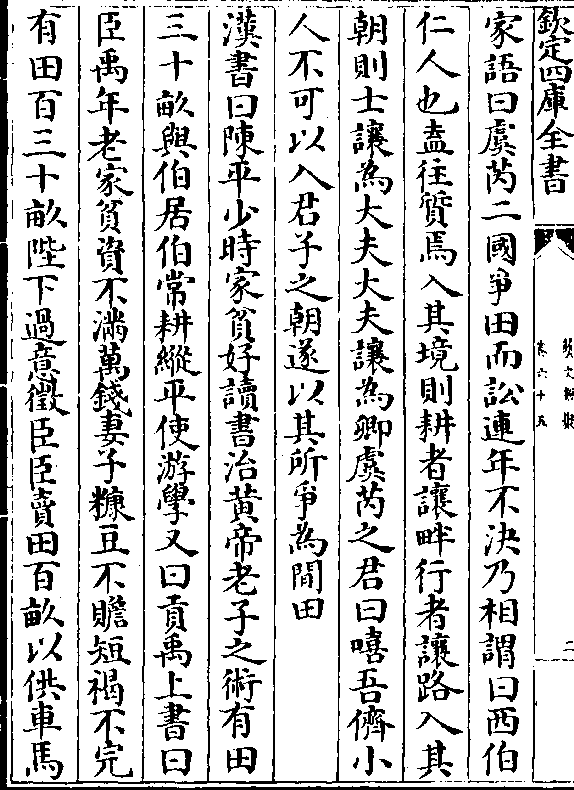 欽定四庫全書
藝文類聚
卷六十五
二
家語曰虞芮二國爭田而訟連年不決乃相謂曰西伯
仁人也盍往質焉入其境則耕者讓畔行者讓路入其
朝則士讓為大夫大夫讓為卿虞芮之君曰嘻吾儕小
人不可以入君子之朝遂以其所爭為閒田
漢書曰陳平少時家貧好讀書治黄帝老子之術有田
三十畝與伯居伯常耕縱平使游學又曰貢禹上書曰
臣禹年老家貧資不滿萬錢妻子糠豆不贍短褐不完
有田百三十畝陛下過意徵臣臣賣田百畝以供車馬